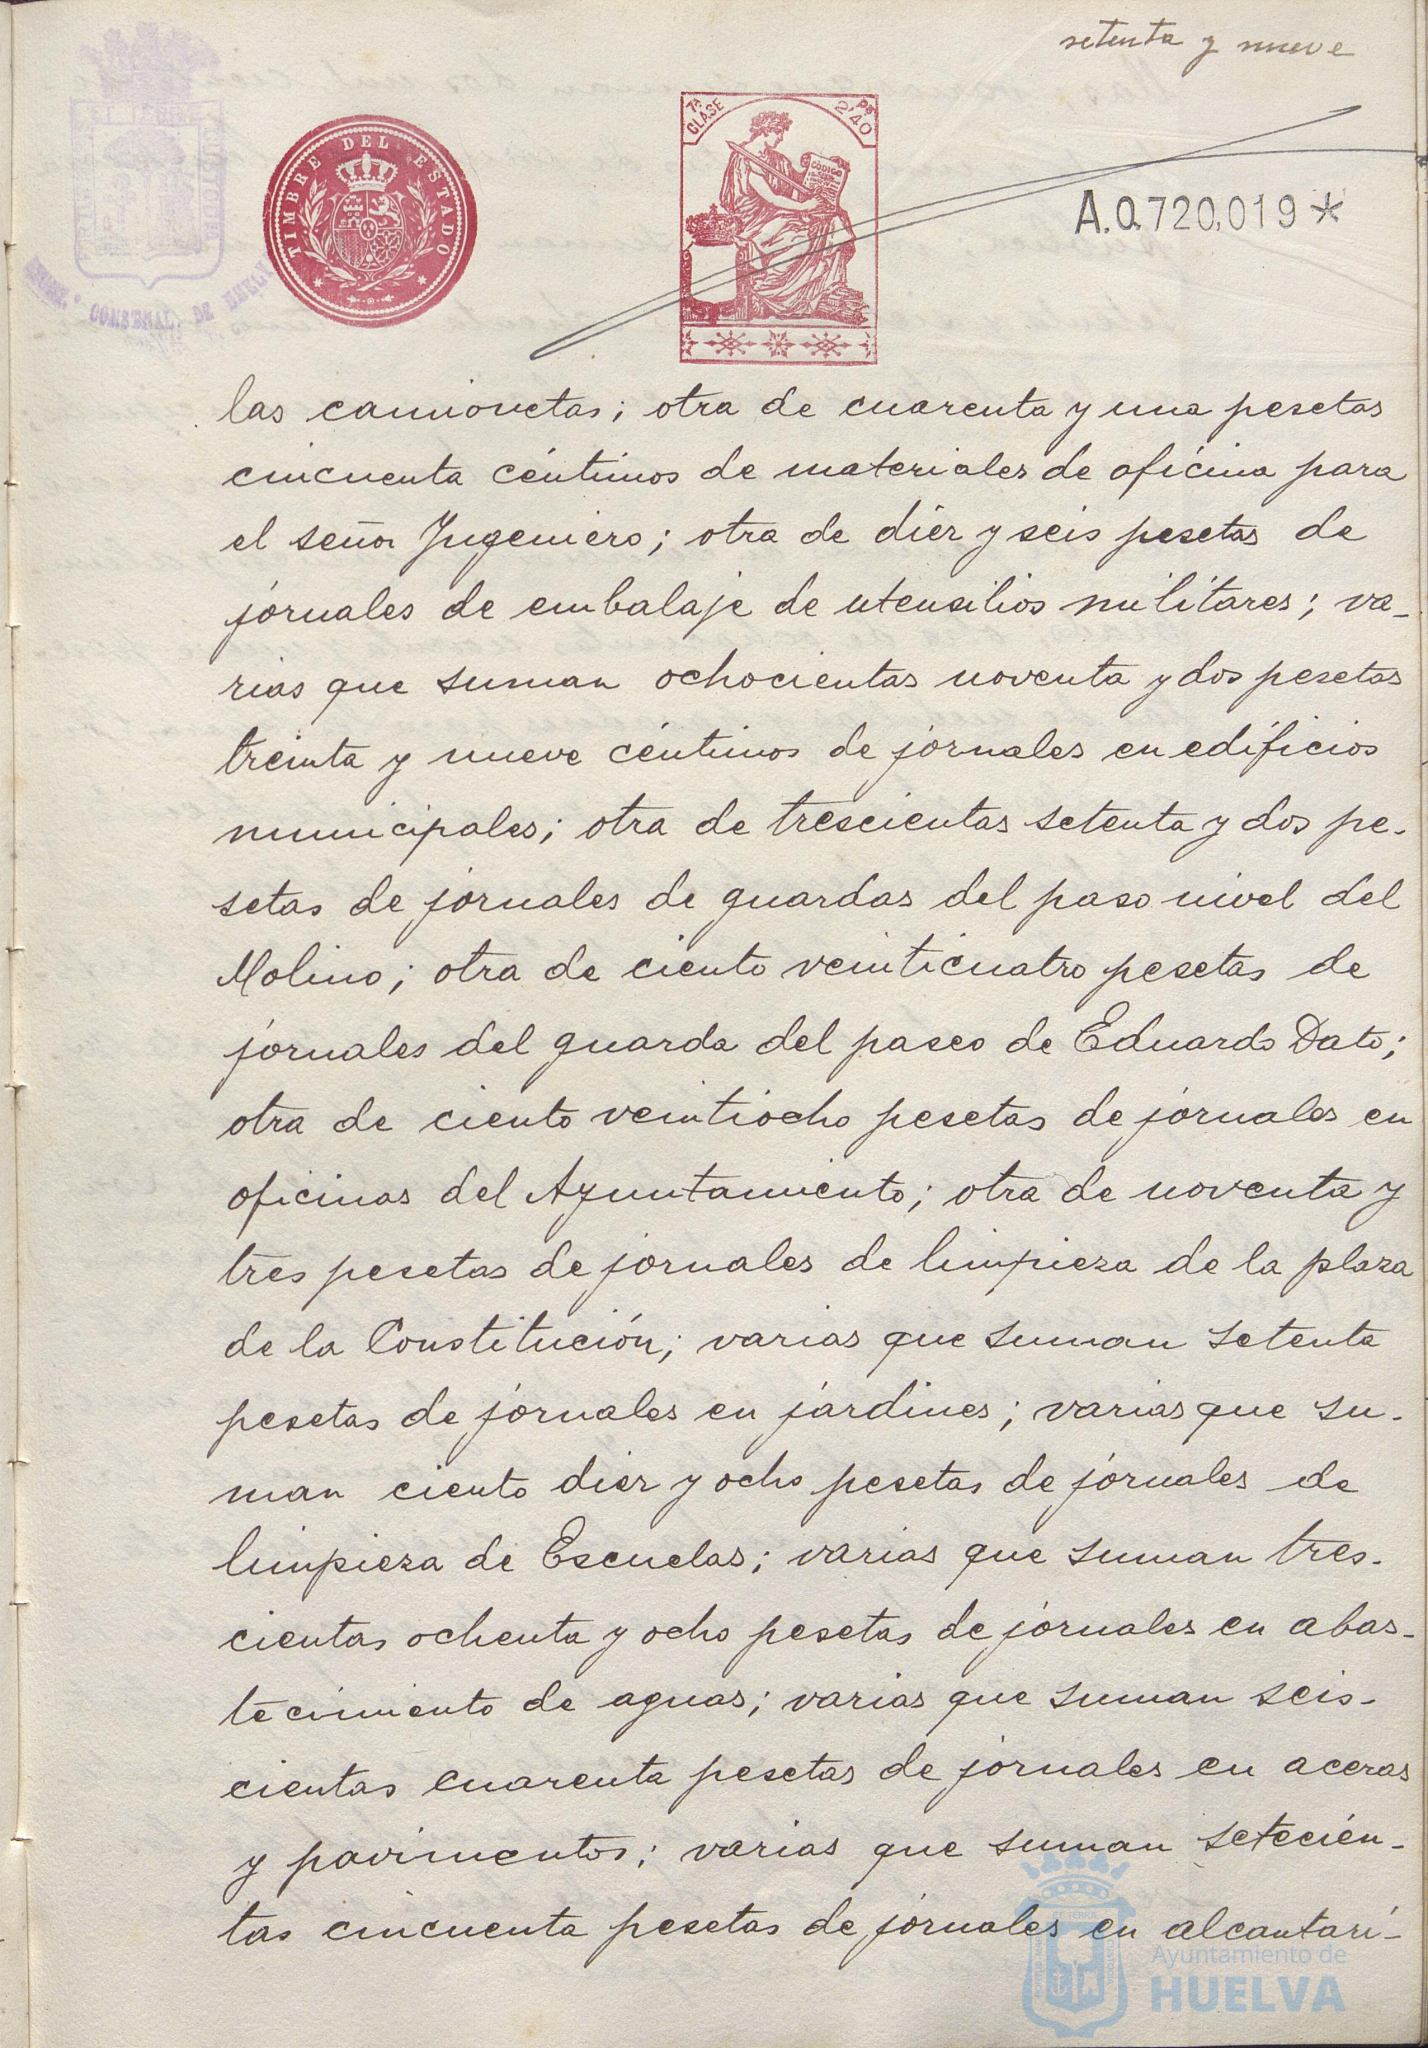 setenta y nueve
TIMBRE DEL ESTADO
7ª CLASE
Ps 2'40
CODIGO
A.0.720,019*
CONSERAL. DE HUELV
las camionetas; otra de cuarenta y una pesetas
cincuenta céntimos de materiales de oficina para
el señor Ingeniero; otra de diez y seis pesetas de
jornales de embalaje de utensilios militares; va-
rias que suman ochocientas noventa y dos pesetas
treinta y nueve céntimos de jornales en edificios
municipales; otra de trescientas setenta y dos pe-
setas de jornales de guardas del paso nivel del
Molino; otra de ciento veinticuatro pesetas de
jornales del guarda del paseo de Eduardo Dato;
otra de ciento veintiocho pesetas de jornales en
oficinas del Ayuntamiento; otra de noventa y
tres pesetas de jornales de limpieza de la plaza
de la Constitución; varias que suman setenta
pesetas de jornales en jardines; varias que su-
man ciento diez y ocho pesetas de jornales de
limpieza de Escuelas; varias que suman tres-
cientas ochenta y ocho pesetas de jornales en abas-
tecimiento de aguas; varias que suman seis-
cientas cuarenta pesetas de jornales en aceras
y pavimentos; varias que suman setecien-
tas cincuenta pesetas de jornales en alcantari-
Ayuntamiento de
HUELVA